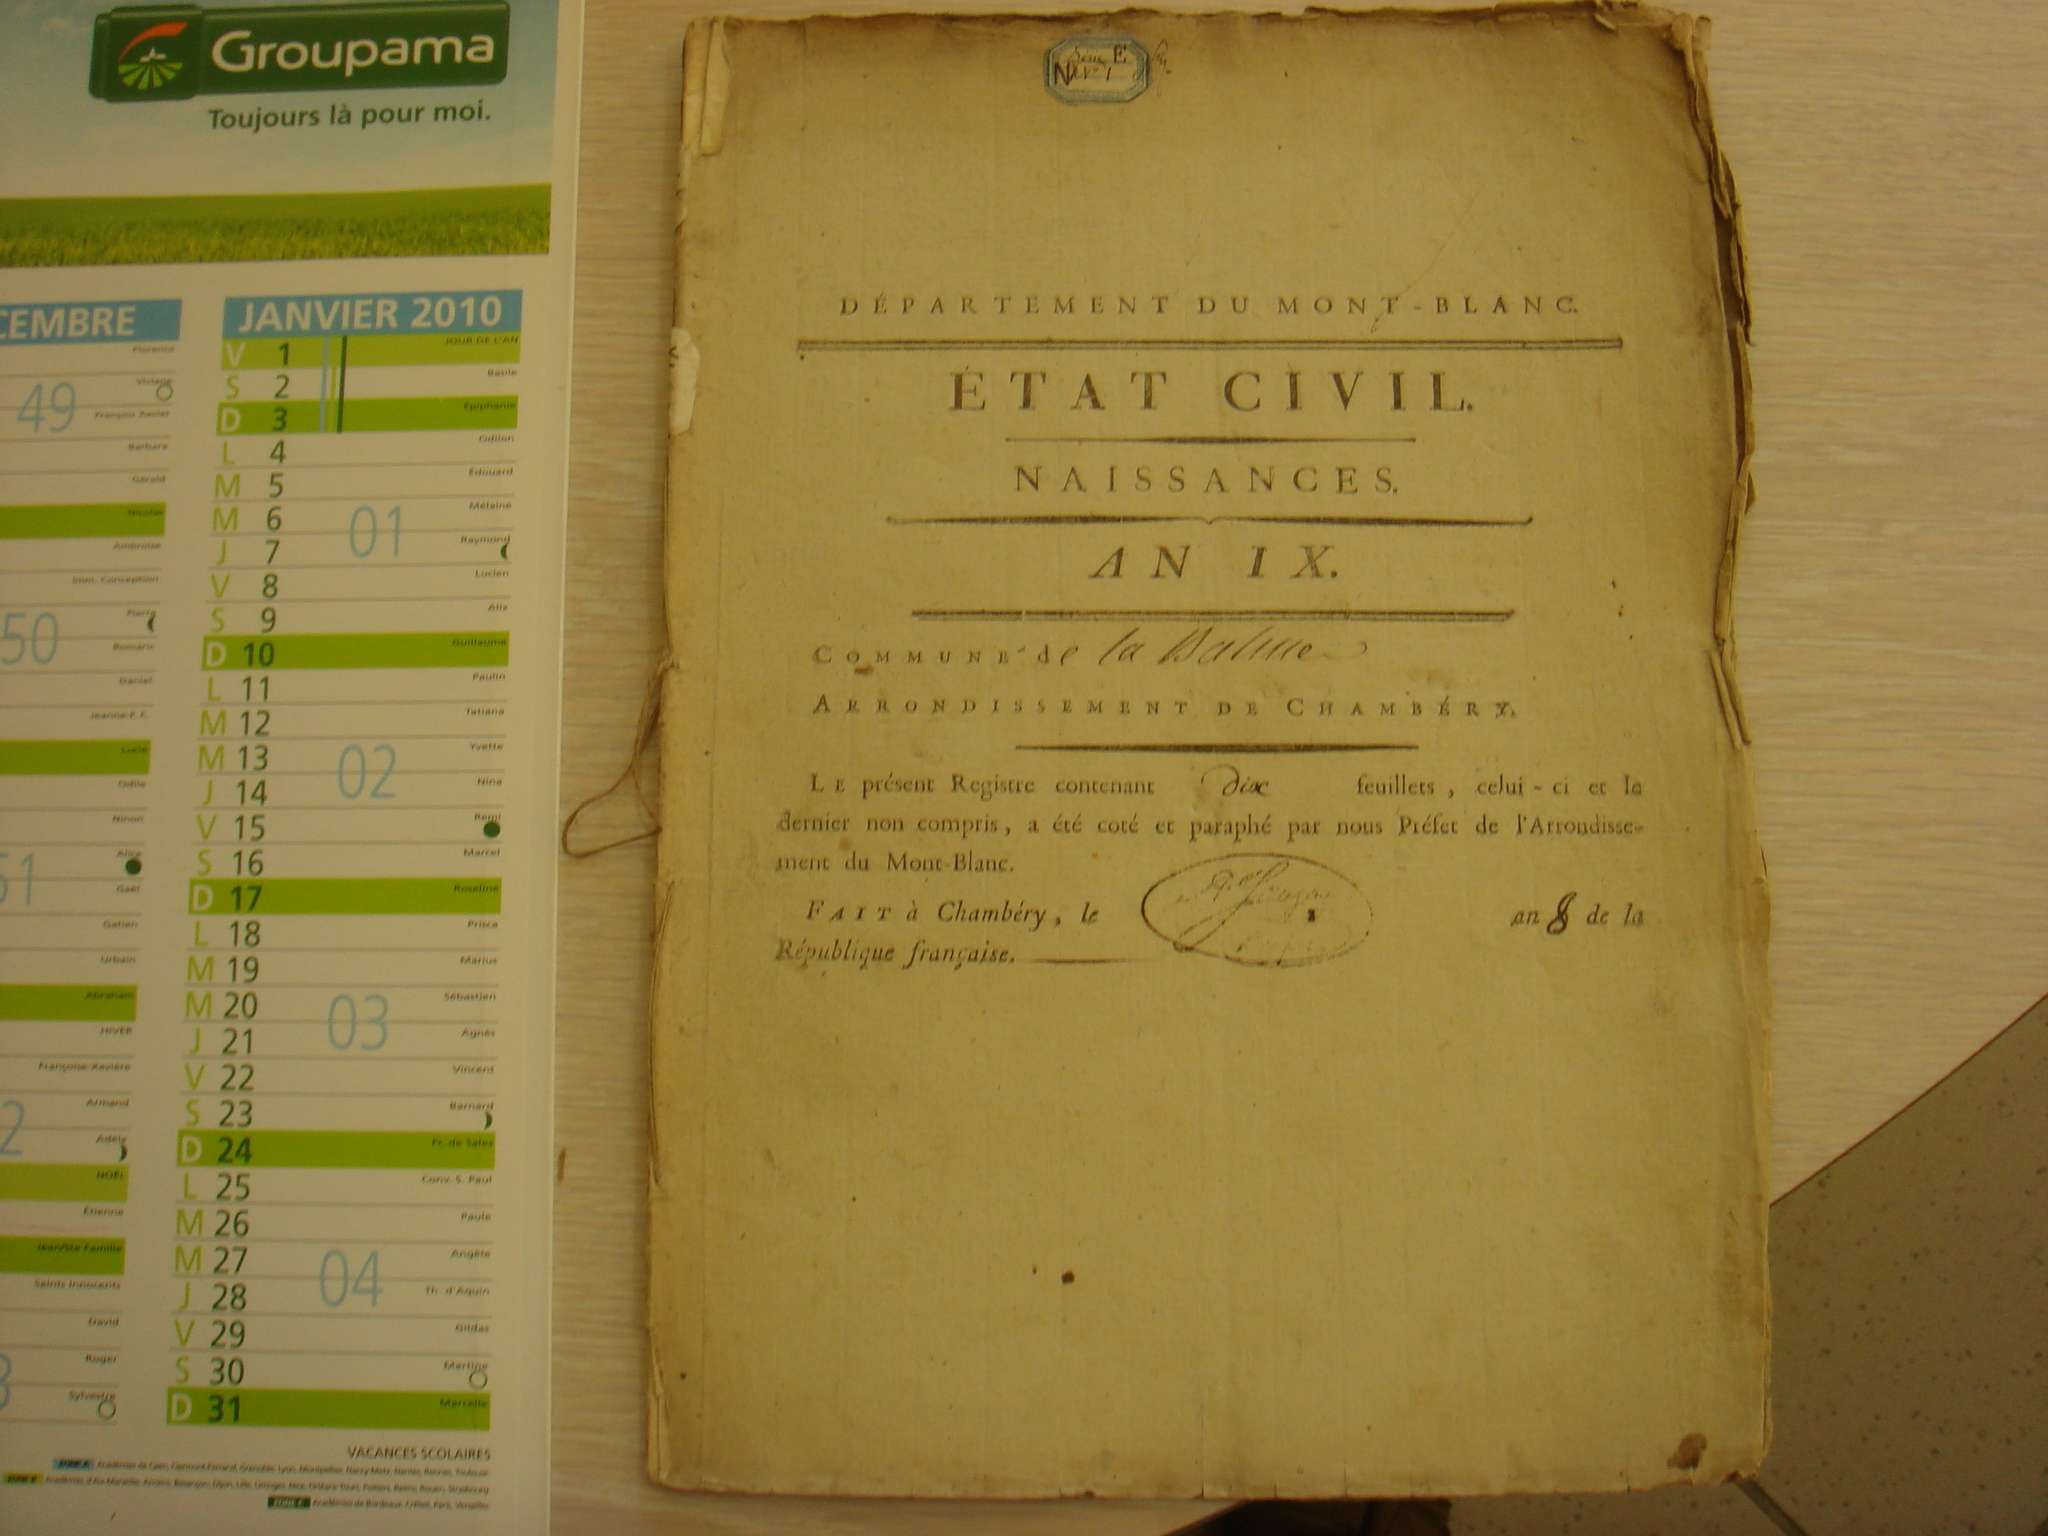 Groupama
Toujours là pour moi.
CEMBRE
49
50
51
2
3
Barbara
Gérald
Nicolas
Ambroise
Imm. Conception
Pierre
Romaric
Daniel
Jeanne-F. C.
Lucie
Odile
Ninon
Alice
Gaël
Gatien
Urbain
Abraham
HIVER
Françoise-Xavière
Armand
Adèle
NOËL
Étienne
Saints Innocents
David
Roger
Sylvestre
JANVIER 2010
V 1 JOUR DE L'AN
S 2 Basile
D 3 Epiphanie
L 4 Odilon
M 5 Édouard
M 6 Mélaine
01
J 7 Raymond
V 8 Lucien
S 9 Alix
D 10 Guillaume
L 11 Paulin
M 12 Tatiana
M 13 Yvette
02
J 14 Nina
V 15 Remi
S 16 Marcel
D 17 Roseline
L 18 Prisca
M 19 Marius
M 20 Sébastien
03
J 21 Agnès
V 22 Vincent
S 23 Barnard
D 24 Fr. de Sales
L 25 Conv. S. Paul
M 26 Paule
M 27 Angèle
04
J 28 Th. d'Aquin
V 29 Gildas
S 30 Martine
D 31 Marcelle
VACANCES SCOLAIRES
E
N
DÉPARTEMENT DU MONT-BLANC.
ÉTAT CIVIL.
NAISSANCES.
AN IX.
COMMUNE de la Balme
ARRONDISSEMENT DE CHAMBÉRY.
LE présent Registre contenant dix feuillets, celui-ci et le
dernier non compris, a été coté et paraphé par nous Préfet de l'Arrondisse-
ment du Mont-Blanc.
FAIT à Chambéry, le an 8 de la
République française.